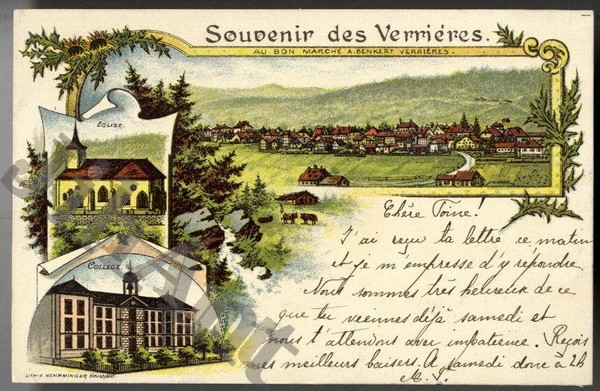 Souvenir des Verriéres.
AU BON MARCHÉ A. BENKERT VERRIÈRES.
EGLISE
COLLÈGE
Chère Toine!
J'ai reçu ta lettre ce matin
et je m'empresse d'y répondre.
Nous sommes très heureux de ce
que tu viennes déjà samedi et
nous t'attendons avec impatience. Reçois
mes meilleurs baisers. A samedi donc à 2h
LITH. F. NEUCHÂTEL